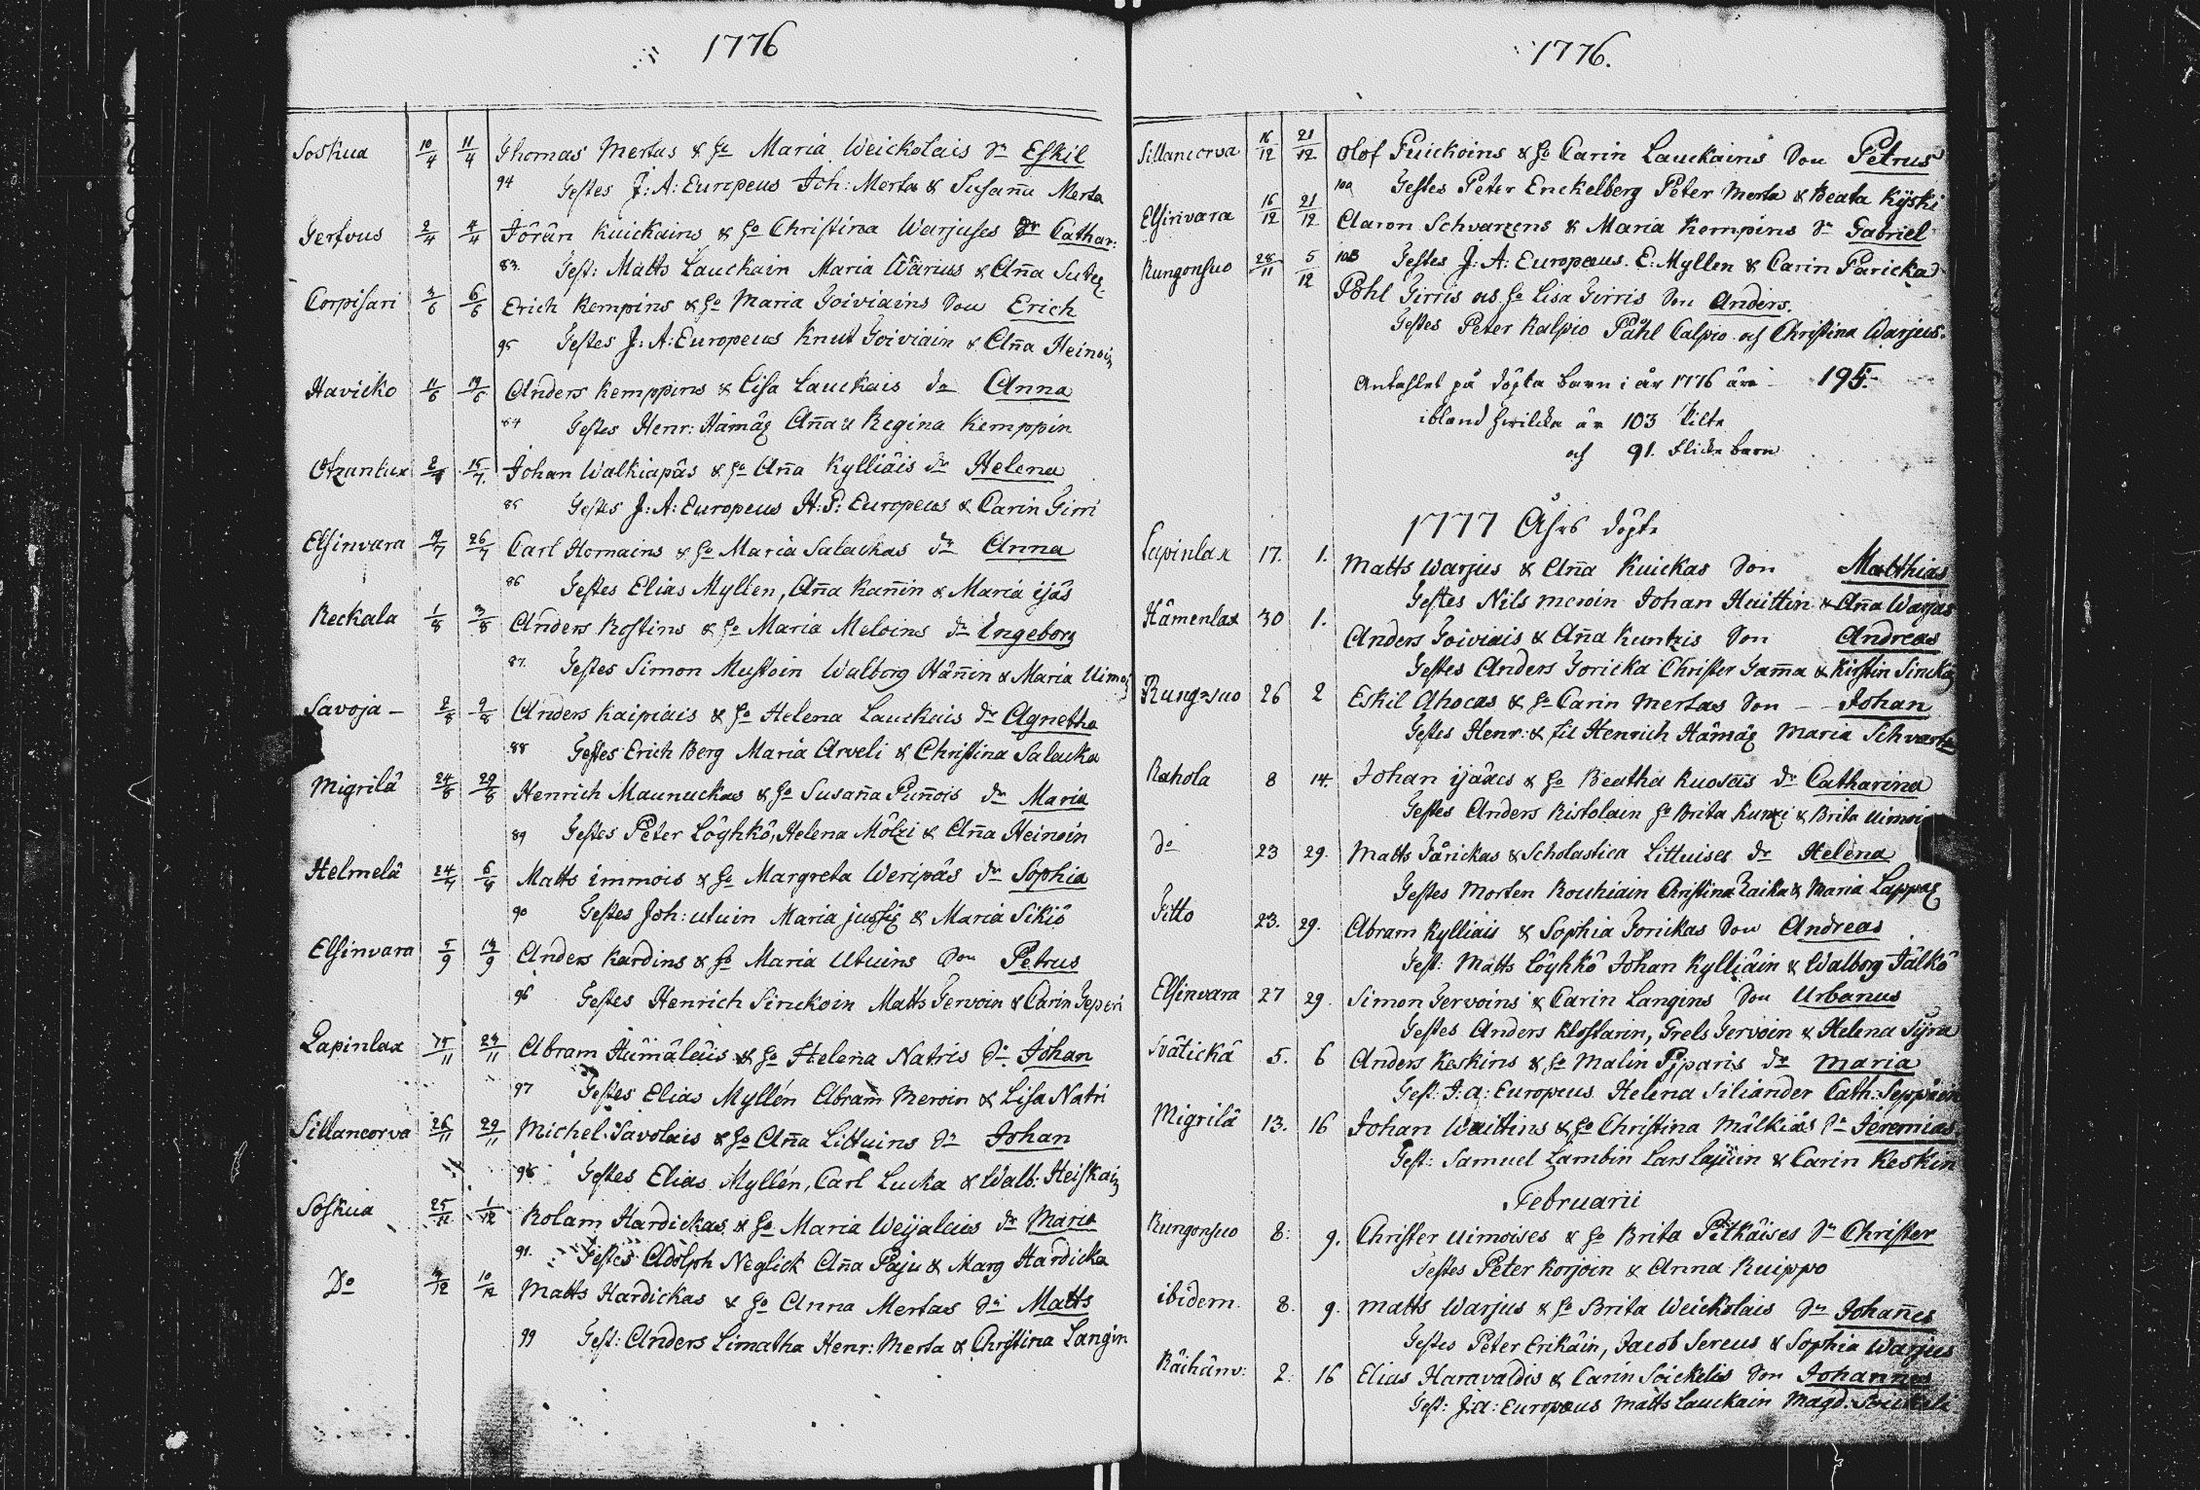 1776
Soskua 10/4 11/4 Thomas Mertas & h: Maria Weickolais Sn Eskil
94 Testes J: A: Europeus Joh: Merta & Susaña Merta
Gertvus 2/4 4/4 Jöran Kuickains & ho Christina Warjuses dr Cathar:
83. Test: Matts Lauckain Maria Warius & Aña
Corpisari 3/6 6/6 Erich Kempins & ho Maria Toiviains Son Erich
95 Testes J: A: Europeus Knut Toiviain & Aña Heinoin
Havicko 11/6 Anders Kemppins & Lisa Lauckais dr Anna
84 Testes Henr: Hämäl Aña & Regina Kemppin
15/7. Johan Walkiapäs & ho Aña Kylliäis dr Helena
85 Testes J: A: Europeus H: P: Europeus & Carin Girri
Elsinvara 26/7 Carl Homains & ho Maria Salackas dr Anna
86 Testes Elias Myllen, Aña Kañin & Maria ijäs
Reckala 1/8 3/8 Anders Rostins & ho Maria Meloins dr Ingeborg
87. Testes Simon Mustoin Walborg Häñin & Maria Uimoi
Savoja – 2/8 9/8 Anders Kaipiais & ho Helena Lauckais dr Agnetha
88 Testes Erich Berg Maria Arveli & Christina Salacka
Migrilä 24/8 29/8 Henrich Maunuckas & ho Susaña Puñois dr Maria
89 Testes Peter Löyhkö, Helena Mölzi & Aña Heinoin
Helmelä Matts immois & ho Margreta Weripäs dr Sophia
90 Testes Joh: utuin Maria & Maria Sikiö
Elsinvara 5/9 Anders Kardins & ho Maria Utuins Son Petrus
96 Testes Henrich Sinckoin Matts Tervoin & Carin Jeperi
Lapinlax 23/11 Abram Hämäläis & ho Helena Natris Sn Johan
97 Testes Elias Myllén Abram Meroin & Lisa Natri
Sillancorva 26/11 29/11 Michel Savolais & ho Aña Littuins Sn Johan
98 Testes Elias Myllén, Carl Lucka & Walb: Heiskain
Soskua 1/12 Rolam Hardickas & ho Maria Weijalais dr Maria
91. Testes Adolph Neglick Aña Paju & Marg Hardicka
Do 10/12 Matts Hardickas & ho Anna Mertas Sn Matts
99 Test: Anders Limatha Henr: Merta & Christina Langin
1776.
Sillancorva 16/12 21/12 Olof Puickoins & ho Carin Lauckains Son Petrus
100 Testes Peter Enckelberg Peter Merta & Beata Kyski
Elsinvara 16/12 21/12 Aaron Schvarzens & Maria Kempins Sn Gabriel
Rungonsuo 28/11 5/12 Testes J: A: Europaeus. E: Myllen & Carin Päricka
Påhl Girris och ho Lisa Girris Son Anders.
Testes Peter Kalpio Påhl Calpio och Christina Warjus.
Antahlet på döpta barn i år 1776 äro 195.
ibland hwilcka är 103 Piltr
och 91. flicke barn
1777 Åhrs döpte
Lapinlax 17. 1. Matts Warjus & Aña Kuickas Son Matthias
Testes Nils Meroin Johan Huittin & Aña Warjas
Hämenlax 30 1. Anders Toiviais & Aña Kuntzis Son Andreas
Testes Anders Joricka Christer Jama & Kirstin Sincko
Rungosuo 26 2 Eskil Ahocas & ho Carin Mertas Son – – Johan
Testes Henr: & til Henrich Hämäl Maria Schvartz
Rahola 8 14. Johan ijäxes & ho Beatha Kuosas dr Catharina
Testes Anders Ristolain ho Brita Kunzi & Brita Uimoi
do 23 29. Matts Pärickas & Scholastica Littuises dr Helena
Testes Morten Rouhiain Christina Zaika & Maria Lappal
Titto 23. 29. Abram Kylliäis & Sophia Jorickas Son Andreas
Test: Matts Löyhkö Johan Kylliäin & Walborg Jälkö
Elsinvara 27 29. Simon Tervoins & Carin Langins Son Urbanus
Testes Anders Klostarin, Grels Tervoin & Helena Syra
Svätickä 5. 6 Anders Keskins & ho Malin Piparis dr Maria
Test: J: a: Europeus Helena Siliander Cath: Seppain
Migrilä 13. 16 Johan Waittins & ho Christina Mälkiäs Sn Jeremias
Test: Samuel Lambin Lars Lajuin & Carin Keskin
Februarii
Rungonsuo 8: 9. Christer Uimoises & ho Brita Pitkäises Sn Christer
Testes Peter Korjoin & Anna Kuippo
ibidem. 8. 9. Matts Warjus & ho Brita Weickolais Sn Johañes
Testes Peter Erikäin, Jacob Sereus & Sophia Warjus
Räihänv: 2: 16 Elias Haravaldis & Carin Soickelis Son Johannes
Test: J: a: Europæus Matts Lauckain Magd: